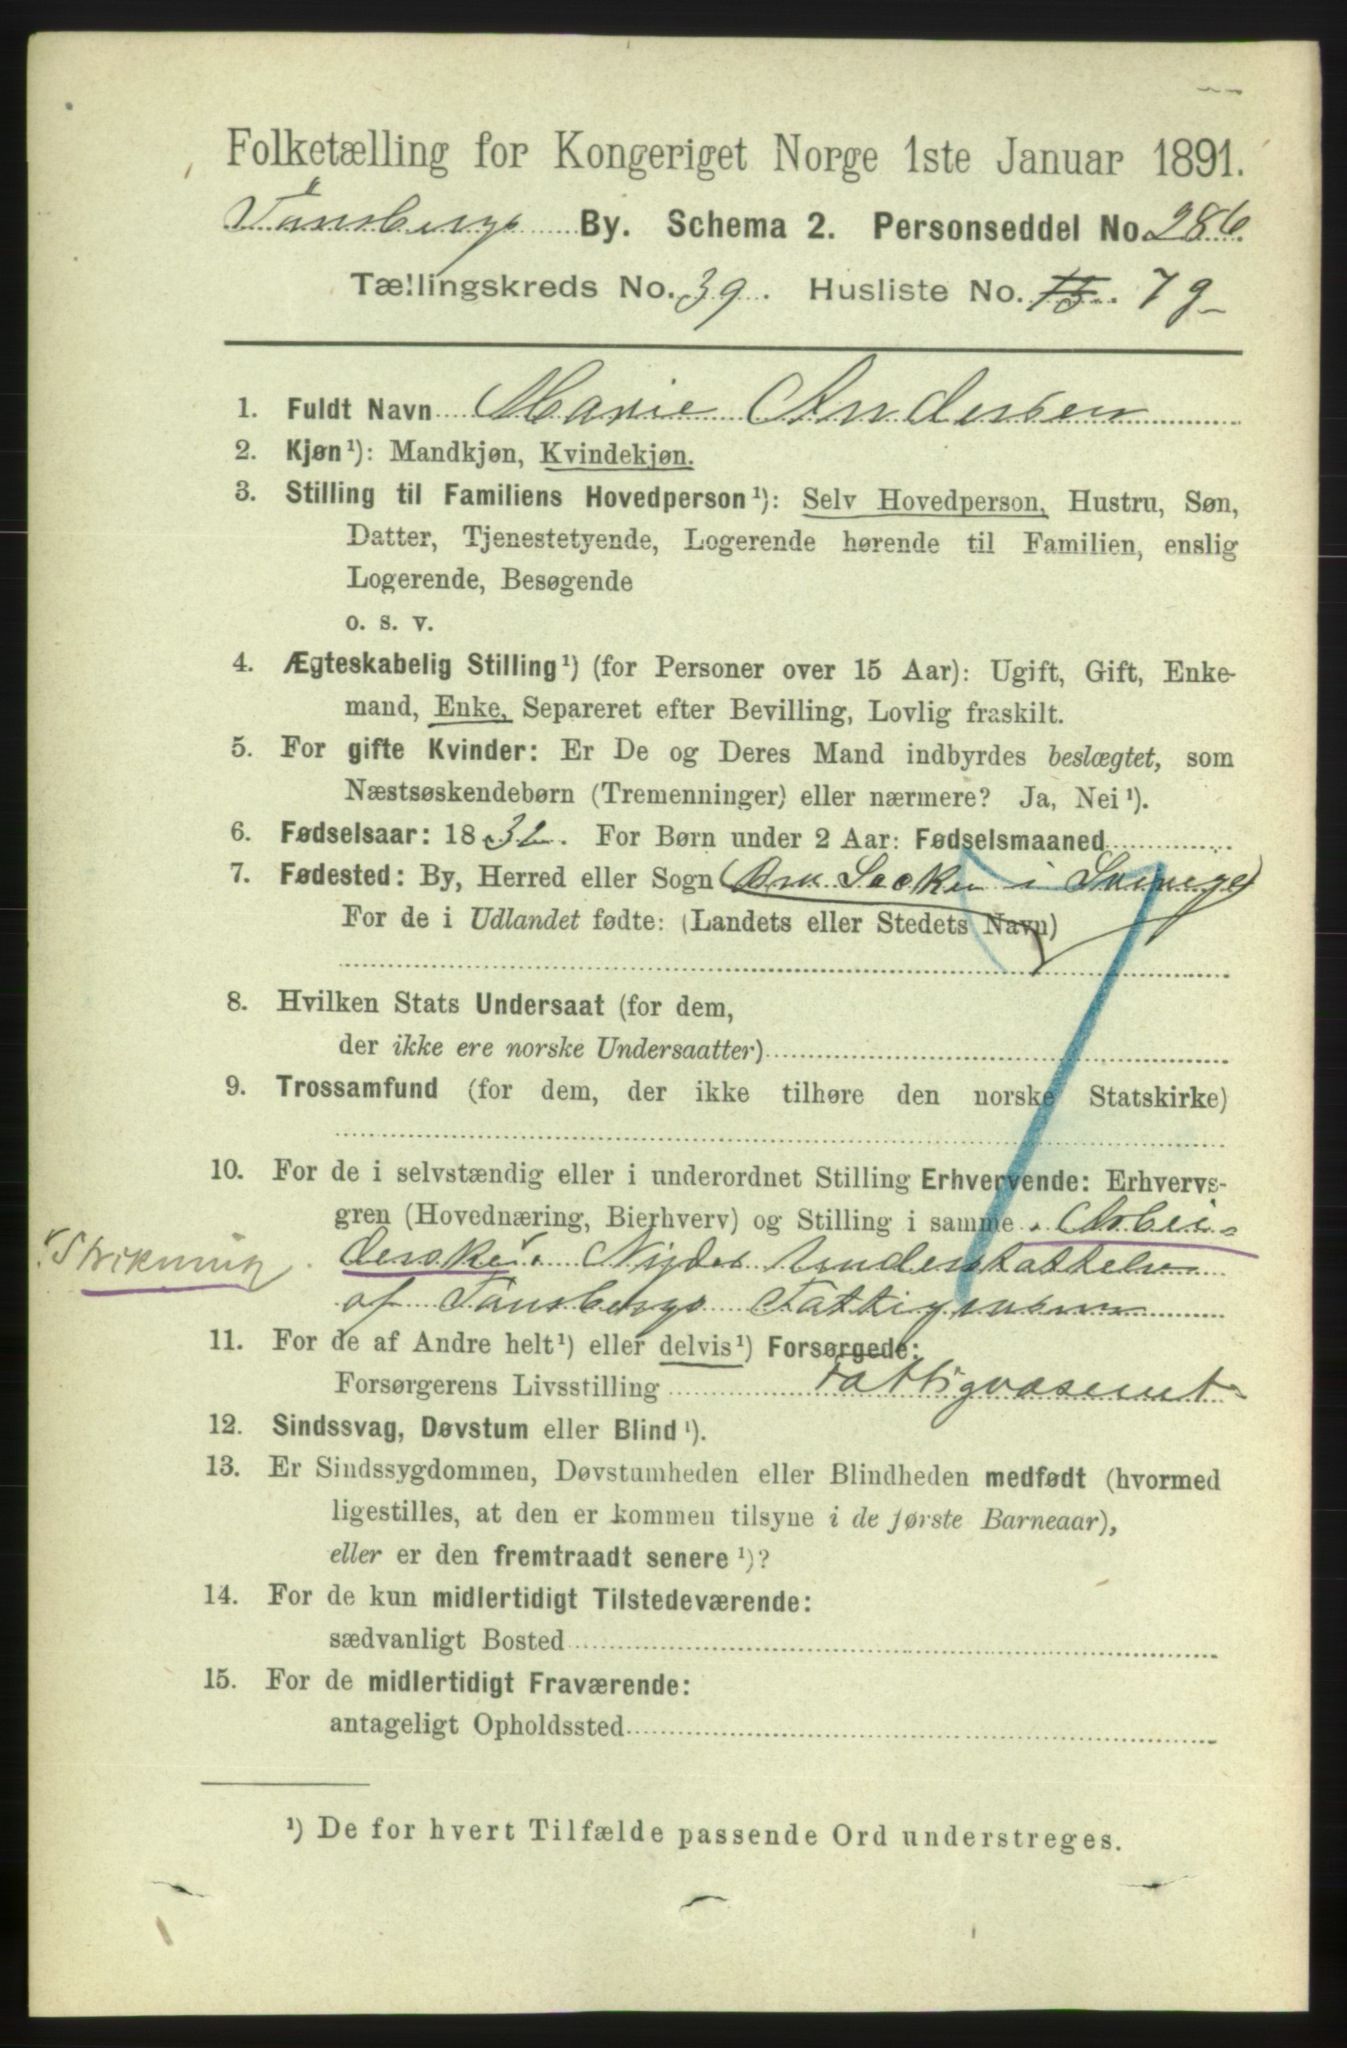 Folketælling for Kongeriget Norge 1ste Januar 1891.
Tönsbergs By. Schema 2. Personseddel No. 286
Tællingskreds No. 39. Husliste No. 15 79
1. Fuldt Navn Marie Andersen
2. Kjøn¹): Mandkjøn, Kvindekjøn.
3. Stilling til Familiens Hovedperson¹): Selv Hovedperson, Hustru, Søn,
Datter, Tjenestetyende, Logerende hørende til Familien, enslig
Logerende, Besøgende
o. s. v.
4. Ægteskabelig Stilling¹) (for Personer over 15 Aar): Ugift, Gift, Enke-
mand, Enke, Separeret efter Bevilling, Lovlig fraskilt.
5. For gifte Kvinder: Er De og Deres Mand indbyrdes beslægtet, som
Næstsøskendebørn (Tremenninger) eller nærmere? Ja, Nei¹).
6. Fødselsaar: 1832. For Børn under 2 Aar: Fødselsmaaned
7. Fødested: By, Herred eller Sogn Bru Socken i Sverige
For de i Udlandet fødte: (Landets eller Stedets Navn)
8. Hvilken Stats Undersaat (for dem,
der ikke ere norske Undersaatter)
9. Trossamfund (for dem, der ikke tilhøre den norske Statskirke)
10. For de i selvstændig eller i underordnet Stilling Erhvervende: Erhvervs-
gren (Hovednæring, Bierhverv) og Stilling i samme Arbei-
Strikning derske. Nyder Understøttelse
af Tönsbergs Fattigvæsen
11. For de af Andre helt¹) eller delvis¹) Forsørgede:
Forsørgerens Livsstilling Fattigvæsenet
12. Sindssvag, Døvstum eller Blind¹).
13. Er Sindssygdommen, Døvstumheden eller Blindheden medfødt (hvormed
ligestilles, at den er kommen tilsyne i de første Barneaar),
eller er den fremtraadt senere¹)?
14. For de kun midlertidigt Tilstedeværende:
sædvanligt Bosted
15. For de midlertidigt Fraværende:
antageligt Opholdssted
¹) De for hvert Tilfælde passende Ord understreges.